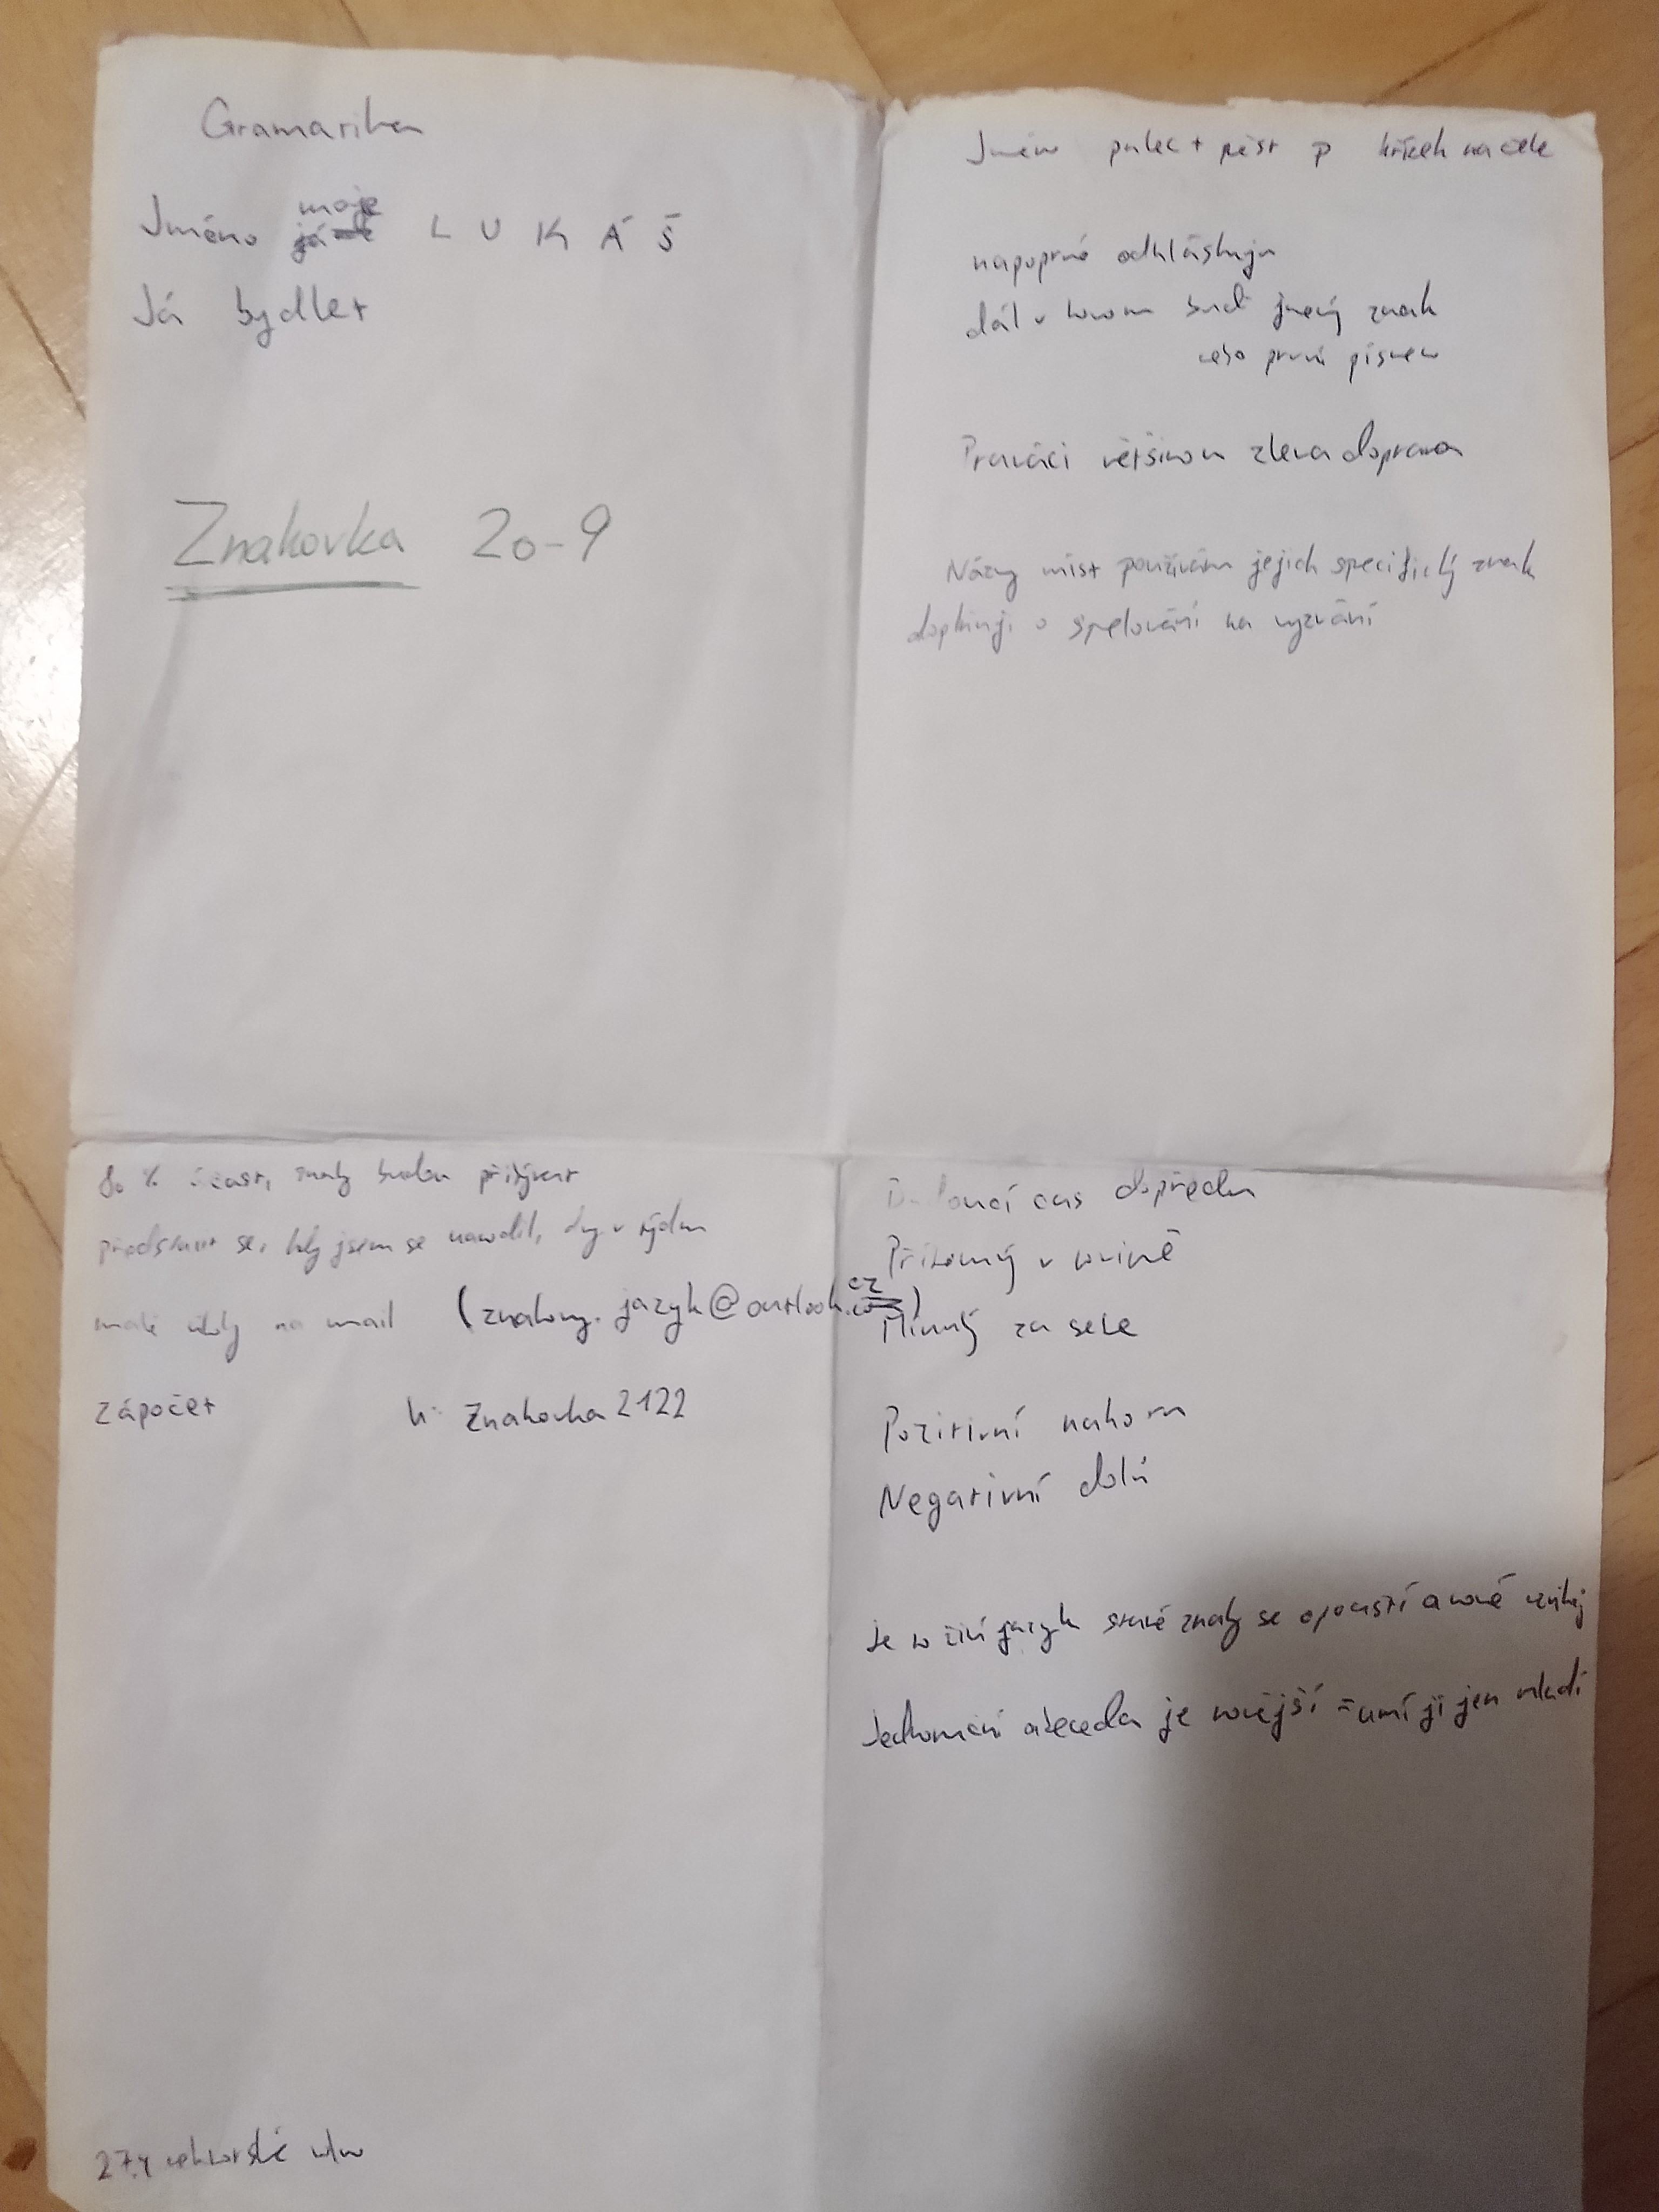 Gramatika
moje
Jméno L U K Á Š
Já bydlet
Znakovka 20-9
Jméno palec + pěst křížek na čele
napoprvé odhláskuju
dál v hovoru buď jmený znak
nebo první písmeno
Praváci většinou zleva doprava
Názvy míst používám jejich specifický znak
doplňuji o spelování na vyzvání
80 % účast, znaky budou přibývat
představit se, kdy jsem se narodil, dny v týdnu
malé úkoly na mail (znakovy.jazyk@outlook.cz)
zápočet h: Znakovka2122
27.4 rektorské volno
Budoucí čas dopředu
Přítomný v rovině
Minulý za sebe
Pozitivní nahoru
Negativní dolů
Je to živí jazyk staré znaky se opouští a nové vznikají
Jednoruční abeceda je novější = umí ji jen mladí